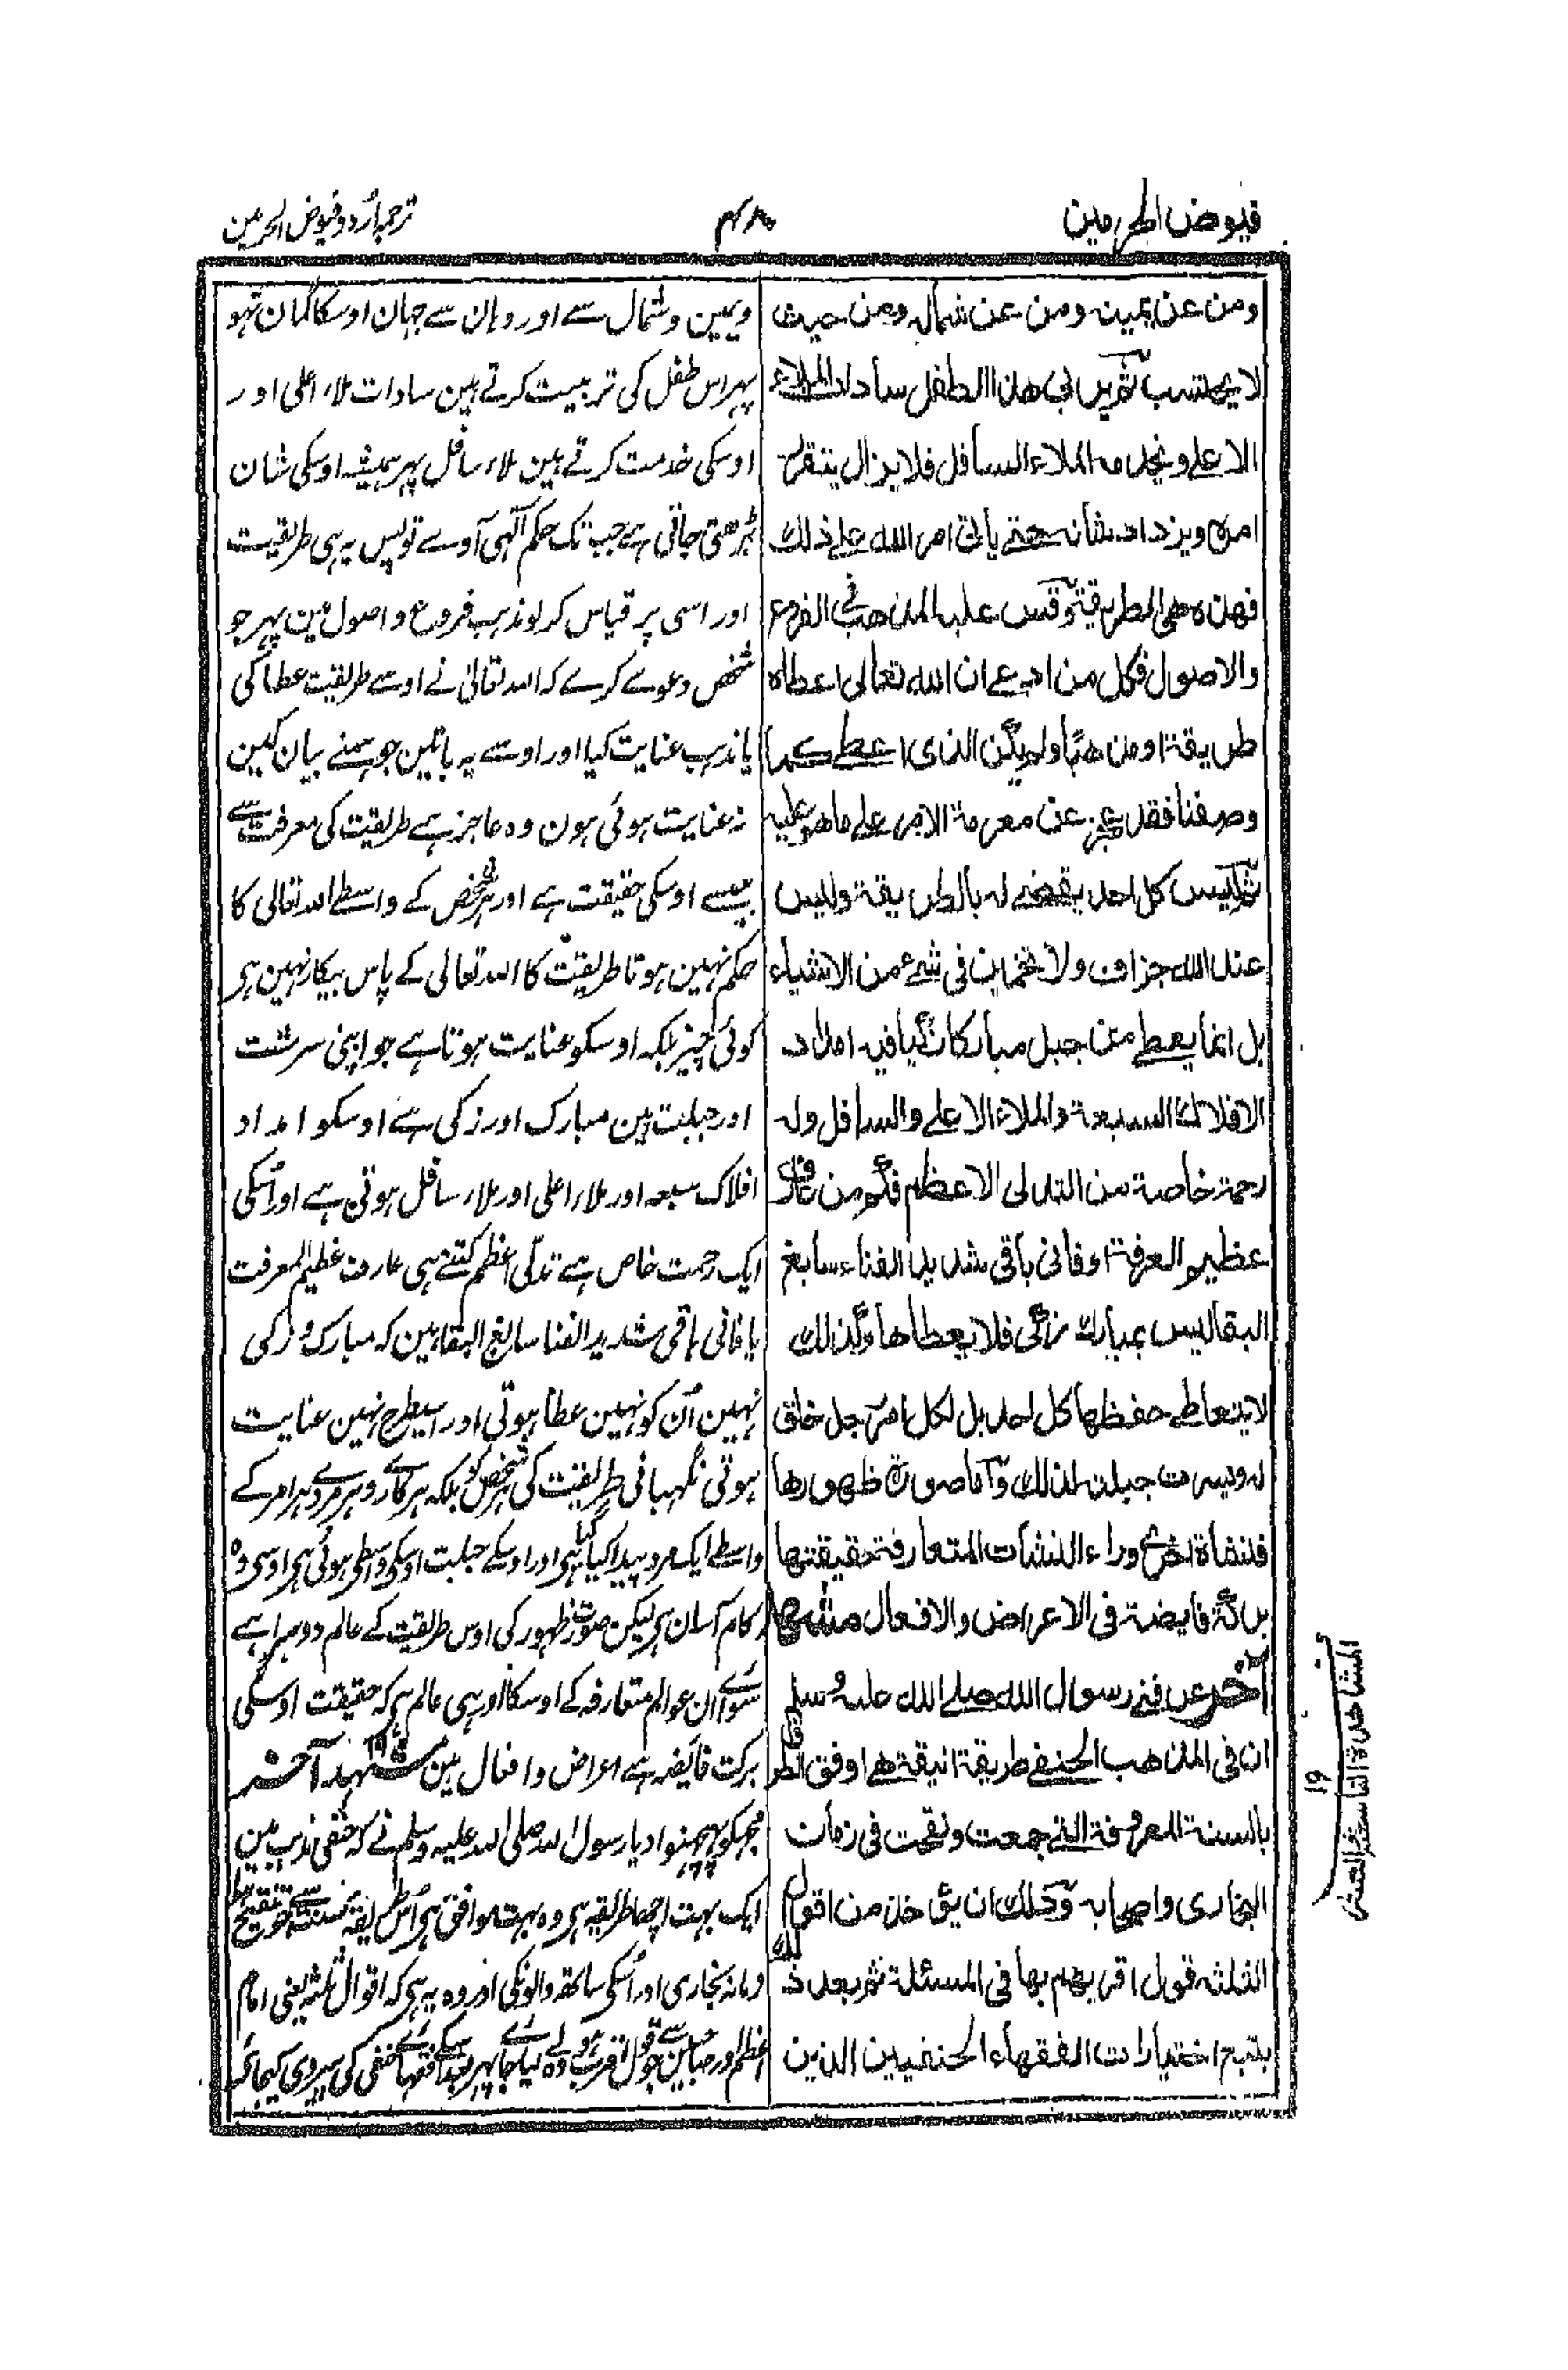 فیوض الحرمین
۴۸
ترجمہ اُردو فیوض الحرمین
ومن عن یمینہ ومن عن شمالہ ومن حیث
لا یحتسب ثم یربی ھذا الطفل سادات الملاء
الاعلے ویخدمہ الملاء السافل فلا یزال یتقرر
امرہ ویزداد شانہ حتے یاتی امر اللہ علے ذلک
فھذہ ھی الطریقۃ وقس علیہ المذھب فی الفروع
والاصول فکل من ادعے ان اللہ تعالی اعطاہ
طریقۃ او مذھبا ولم یکن الذی اعطے کما
وصفنا فقد عجز عن معرفۃ الامر علے ما ھو علیہ
ثم لیس کل احد یقضے لہ بالطریقۃ ولیس
عند اللہ جزاف ولا تخمین فی شیء من الاشیاء
بل انما یعطے من جبل مبارکا زکیا فیہ امداد
الافلاک السبعۃ والملاء الاعلے والسافل ولہ
رحمۃ خاصۃ من التدلی الاعظم فکم من عارف
عظیم المعرفۃ او فانی باقی شدید الفناء سابغ
البقا لیس بمبارک زکی فلا یعطاھا وکذلک
لا یتعاطے حفظھا کل احد بل لکل امر رجل خلق
لہ ویسرت جبلتہ لذلک واما صورۃ ظھورھا
فلنشاۃ اخری وراء النشات المتعارفۃ حقیقتھا
برکۃ فایضۃ فی الاعراض والافعال مشھد
آخر عرفنی رسول اللہ صلے اللہ علیہ وسلم
ان فی المذھب الحنفے طریقۃ انیقۃ ھے اوفق الطرق
بالسنۃ المعروفۃ التے جمعت ونقحت فی زمان
البخاری واصحابہ وذلک ان یؤخذ من اقوال
الثلثہ قول اقربھم بھا فی المسئلۃ ثم بعد ذلک
یتبع اختیارات الفقھاء الحنفیین الذین
ویمین وشمال سے اور وہان سے جہان اوسکا گمان نہو
پہر اس طفل کی تربیت کرتے ہین سادات ملاء اعلی اور
اوسکی خدمت کرتے ہین ملاء سافل پہر ہمیشہ اوسکی شان
بڑھتی جاتی ہے جب تک حکم آلہی آوے تو پس یہ ہی طریقیت
اور اسی پر قیاس کر لو مذہب فروع و اصول مین پہر جو
شخص دعوے کرے کہ اللہ تعالیٰ نے اوسے طریقیت عطا کی
یا مذہب عنایت کیا اور اوسے یہ باتین جو ہمنے بیان کین
نہ عنایت ہوئی ہون وہ عاجز ہے طریقیت کی معرفت سے
جیسے اوسکی حقیقت ہے اور ہر شخص کے واسطے اللہ تعالی کا
حکم نہین ہوتا طریقت کا اللہ تعالی کے پاس بیکار نہین ہر
کوئی چیز بلکہ اوسکو عنایت ہوتا ہے جو اپنی سرشت
اور جبلت مین مبارک اور زکی ہے اوسکو امداد
افلاک سبعہ اور ملاء اعلی اور ملاء سافل ہوتی ہے اور اُسکی
ایک رحمت خاص ہے تدلّی اعظم کتنے ہی عارف عظیم المعرفت
یا فانی باقی شدید الفنا سابغ البقا ہین کہ مبارک و زکی
نہین اُن کو نہین عطا ہوتی اور اسیطرح نہین عنایت
ہوتی نگہبانی طریقت کی ہر شخص کو بلکہ ہر کارے و ہر مردے ہر امر کے
واسطے ایک مرد پیدا کیا گیا ہی اور اوسکے جبلت اوسکی واسطی ہوئی ہی اوسی وہ
کام آسان ہی لیکن صورت ظہور کی اوس طریقیت کے عالم دوسرا ہے
سوائے ان عوالم متعارفہ کے اوسکا اور ہی عالم ہی کہ حقیقت اوسکی
برکت فایضہ ہے اعراض و افعال مین مشہد آخر
مجہکو پہچنوا دیا رسول اللہ صلی اللہ علیہ وسلم نے کہ حنفی مذہب مین
ایک بہت اچھا طریقہ ہی وہ بہت موافق ہی اُس طریقہ سنت سے جو تنقیح
زمانہ بخاری اور اُسکی ساتھ والونکی اور وہ یہ ہی کہ اقوال ثلثہ یعنی امام
اعظم اور صاحبین سے جو قول اقرب ہو وہ لے لیا جائے پہر بعد اسکے فقہائے حنفی کی پیروی کیجائے
المشاھدۃ التاسعۃ عشر
۱۹